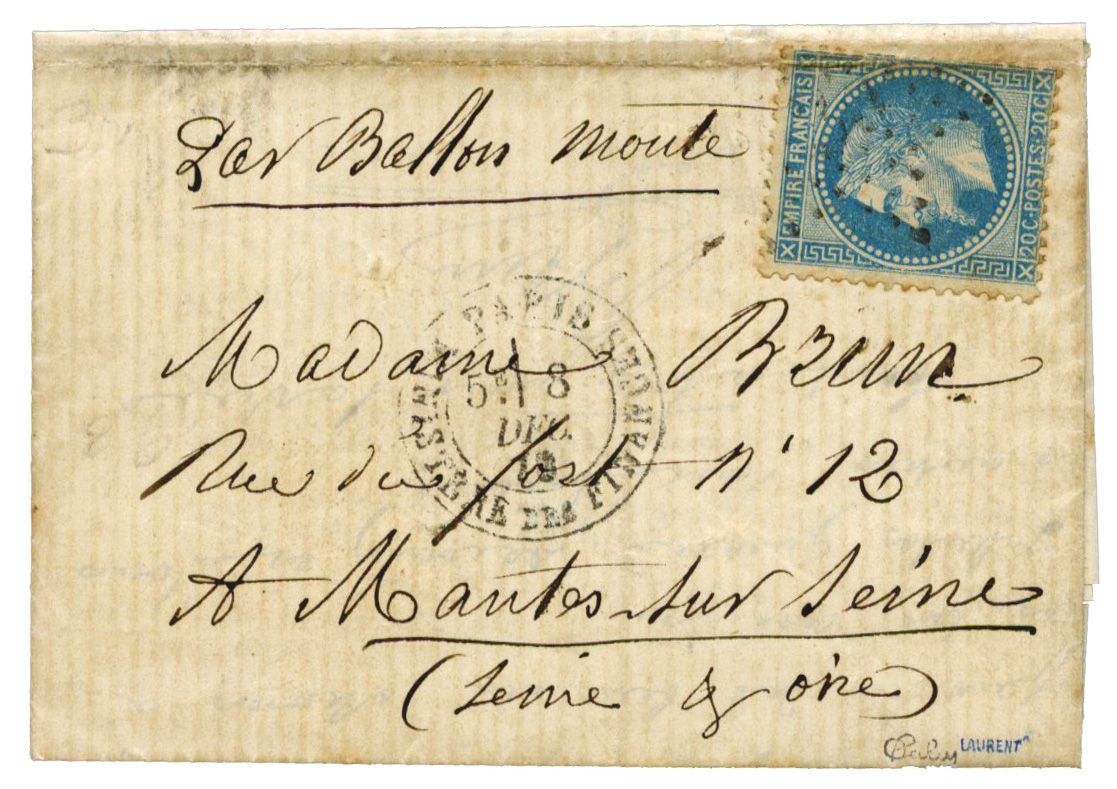 Par Ballon monté
EMPIRE FRANCAIS
20 C·POSTES·20 C
Madame Brun
PARIS
MINISTÈRE DES FINANCES
5E 8
DEC.
Rue du fort N° 12
A Mantes sur Seine
(Seine & oise)
LAURENT